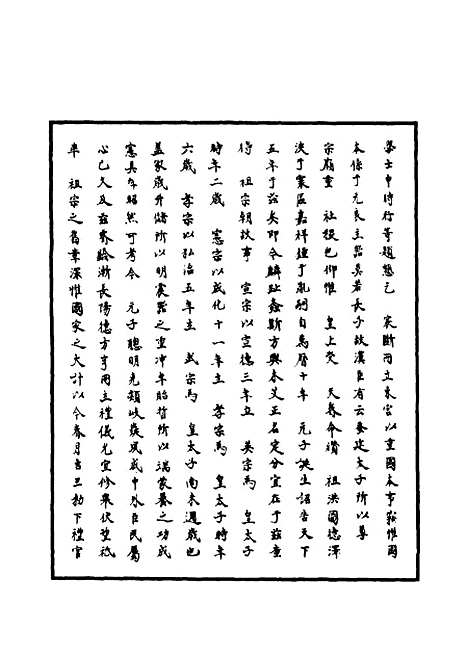 學士申時行等題懇乞　宸斷冊立東宮以重國本事竊惟國
本係于元良主器莫若長子故漢臣有云蚤建太子所以尊
宗廟重　社稷也仰惟　皇上受　天眷命纘　祖洪圖德澤
浹于寰區嘉祥鍾于胤嗣自萬曆十年　元子誕生詔告天下
五年于茲矣即今麟趾螽斯方興未艾正名定分宜在于茲查
得　祖宗朝故事　宣宗以宣德三年立　英宗為　皇太子
時年二歲　憲宗以成化十一年立　孝宗為　皇太子時年
六歲　孝宗以弘治五年立　武宗為　皇太子尚未週歲也
蓋冢歲升儲所以明震器之重冲年貽哲所以端蒙養之功成
憲具存昭然可考今　元子聰明克類岐嶷夙成中外臣民屬
心已久及茲齊齡漸長陽德方亨冊立禮儀允宜修舉伏望祇
率　祖宗之舊章深惟國家之大計以今春月吉旦勑下禮官